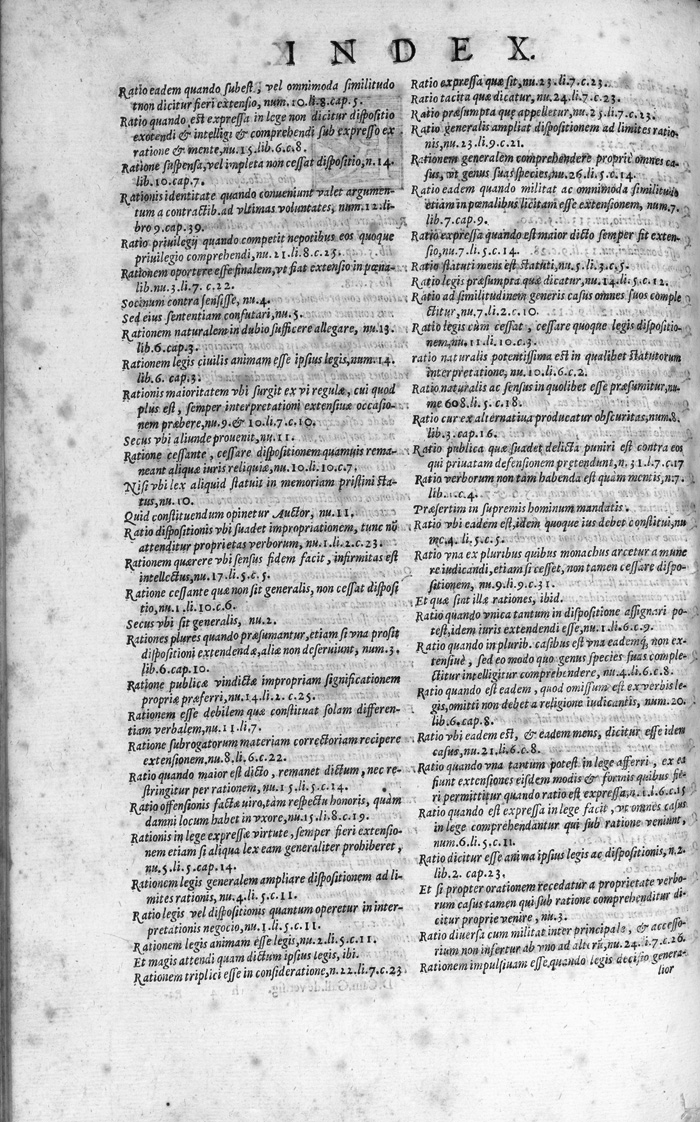 INDEX.
Ratio eadem quando subest, vel omnimoda similitudo
tnon dicitur fieri extensio, num. 10. li. 8. cap. 5.
Ratio quando est expressa in lege non dicitur dispositio
exotendi & intelligi & comprehendi sub expresso ex
ratione & mente, nu. 15. lib. 6. c. 8.
Ratione suspensa, vel impleta non cessat dispositio, n. 14.
lib. 10. cap. 7.
Rationis identitate quando conueniunt valet argumen-
tum a contractib. ad vltimas voluntates, num. 12. li-
bro 9. cap. 39.
Ratio priuilegij quando competit nepotibus eos quoque
priuilegio comprehendi, nu. 21. li. 8. c. 25.
Rationem oportere esse finalem, vt fiat extensio in pœna-
lib. nu. 3. li. 7. c. 22.
Socinum contra sensisse, nu. 4.
Sed eius sententiam confutari, nu. 5.
Rationem naturalem in dubio sufficere allegare, nu. 13.
lib. 6. cap. 3.
Rationem legis ciuilis animam esse ipsus legis, num. 14.
lib. 6. cap. 3.
Rationis maioritatem vbi surgit ex vi regulæ, cui quod
plus est, semper interpretationi extensiuæ occasio-
nem præbere, nu. 9. & 10. li. 7. c. 10.
Secus vbi aliunde prouenit, nu. 11.
Ratione cessante, cessare dispositionem quamuis rema-
neant aliquæ iuris reliquiæ, nu. 10. li. 10. c. 7.
Nisi vbi lex aliquid statuit in memoriam pristini sta-
tus, nu. 10.
Quid constituendum opinetur Auctor, nu. 11.
Ratio dispositionis vbi suadet impropriationem, tunc nō
attenditur proprietas verborum, nu. 1. li. 2. c. 23.
Rationem quærere vbi sensus fidem facit, infirmitas est
intellectus, nu. 17. li. 5. c. 5.
Ratione cessante quæ non sit generalis, non cessat disposi
tio, nu. 1. li. 10. c. 6.
Secus vbi sit generalis, nu. 2.
Rationes plures quando præsumantur, etiam si vna prosit
dispositioni extendendæ, aliæ non deseruiunt, num. 3.
lib. 6. cap. 10.
Ratione publicæ vindictæ impropriam significationem
propriæ præferri, nu. 14. li. 2. c. 25.
Rationem esse debilem quæ constituat solam differen-
tiam verbalem, nu. 11. li. 7.
Ratione subrogatorum materiam correctoriam recipere
extensionem, nu. 8. li. 6. c. 22.
Ratio quando maior est dicto, remanet dictum, nec re-
stringitur per rationem, nu. 15. li. 5. c. 14.
Ratio offensionis factæ viro, tam respectu honoris, quàm
damni locum habet in vxore, nu. 15. li. 8. c. 19.
Rationis in lege expressæ virtute, semper fieri extensio-
nem etiam si aliqua lex eam generaliter prohiberet,
nu. 5. li. 5. cap. 14.
Rationem legis generalem ampliare dispositionem ad li-
mites rationis, nu. 4. li. 5. c. 11.
Ratio legis vel dispositionis quantum operetur in inter-
pretationis negocio, nu. 1. li. 5. c. 11.
Rationem legis animam esse legis, nu. 2. li. 5. c. 11.
Et magis attendi quam dictum ipsius legis, ibi.
Rationem triplici esse in consideratione, n. 22. li. 7. c. 23
Ratio expressa quæ sit, nu. 23. li. 7. c. 23.
Ratio tacita quæ dicatur, nu. 24. li. 7. c. 23.
Ratio præsumpta quę appelletur, nu. 25. li. 7. c. 23.
Ratio generalis ampliat dispositionem ad limites ratio-
nis, nu. 23. li. 9. c. 21.
Rationem generalem comprehendere propriè omnes ca-
sus, vt genus suas species, nu. 26. li. 5. c. 14.
Ratio eadem quando militat ac omnimoda similitudo
etiam in pœnalibus licitam esse extensionem, num. 7.
lib. 7. cap. 9.
Ratio expressa quando est maior dicto semper fit exten-
sio, nu. 7. li. 5. c. 14.
Ratio statuti mens est statuti, nu. 5. li. 3. c. 5.
Ratio legis præsumpta quæ dicatur, nu. 14. li. 5. c. 12.
Ratio ad similitudinem generis casus omnes suos comple
ctitur, nu. 7. li. 2. c. 10.
Ratio legis cùm cessat, cessare quoque legis dispositio-
nem, nu. 11. li. 10. c. 3.
ratio naturalis potentissima est in qualibet statutorum
interpretatione, nu. 10. li. 6. c. 2.
Ratio naturalis ac sensus in quolibet esse præsumitur, nu.
me 608. li. 5. c. 18.
Ratio cur ex alternatiua producatur obscuritas, num. 8.
lib. 3. cap. 16.
Ratio publica quæ suadet delicta puniri est contra eos
qui priuatam defensionem pretendunt, n. 31. l. 7. c. 17
Ratio verborum non tam habenda est quàm mentis, n. 7.
lib. 1. c. 4.
Præsertim in supremis hominum mandatis.
Ratio vbi eadem est, idem quoque ius debet constitui, nu
me. 4. li. 5. c. 5.
Ratio vna ex pluribus quibus monachus arcetur a mune
re iudicandi, etiam si cesset, non tamen cessare dispo-
sitionem, nu. 9. li. 9. c. 31.
Et quæ sint illæ rationes, ibid.
Ratio quando vnica tantum in dispositione assignari po-
test, idem iuris extendendi esse, nu. 1. li. 6. c. 9.
Ratio quando in plurib. casibus est vna eademq; non ex-
tensiuè, sed eo modo quo genus species suas comple-
ctitur intelligitur comprehendere, nu. 4. li. 6. c. 8.
Ratio quando est eadem, quod omissum est ex verbis le-
gis, omitti non debet a religione iudicantis, num. 20.
lib. 6. cap. 8.
Ratio vbi eadem est, & eadem mens, dicitur esse idem
casus, nu. 21. li. 6. c. 8.
Ratio quando vna tantum potest in lege afferri, ex ea
fiunt extensiones eisdem modis & formis quibus fie-
ri permittitur quando ratio est expressa, n. 1. l. 6. c. 15
Ratio quando est expressa in lege facit, vt omnes casus
in lege comprehendantur qui sub ratione veniunt,
num. 6. li. 5. c. 11.
Ratio dicitur esse anima ipsius legis ac dispositionis, n. 2.
lib. 2. cap. 23.
Et si propter orationem recedatur a proprietate verbo-
rum casus tamen qui sub ratione comprehenditur di-
citur proprie venire, nu. 3.
Ratio diuersa cum militat inter principale, & accesso-
rium non infertur ab vno ad alterū, nu. 24. li. 7. c. 26.
Rationem impulsiuam esse, quando legis decisio genera-
lior